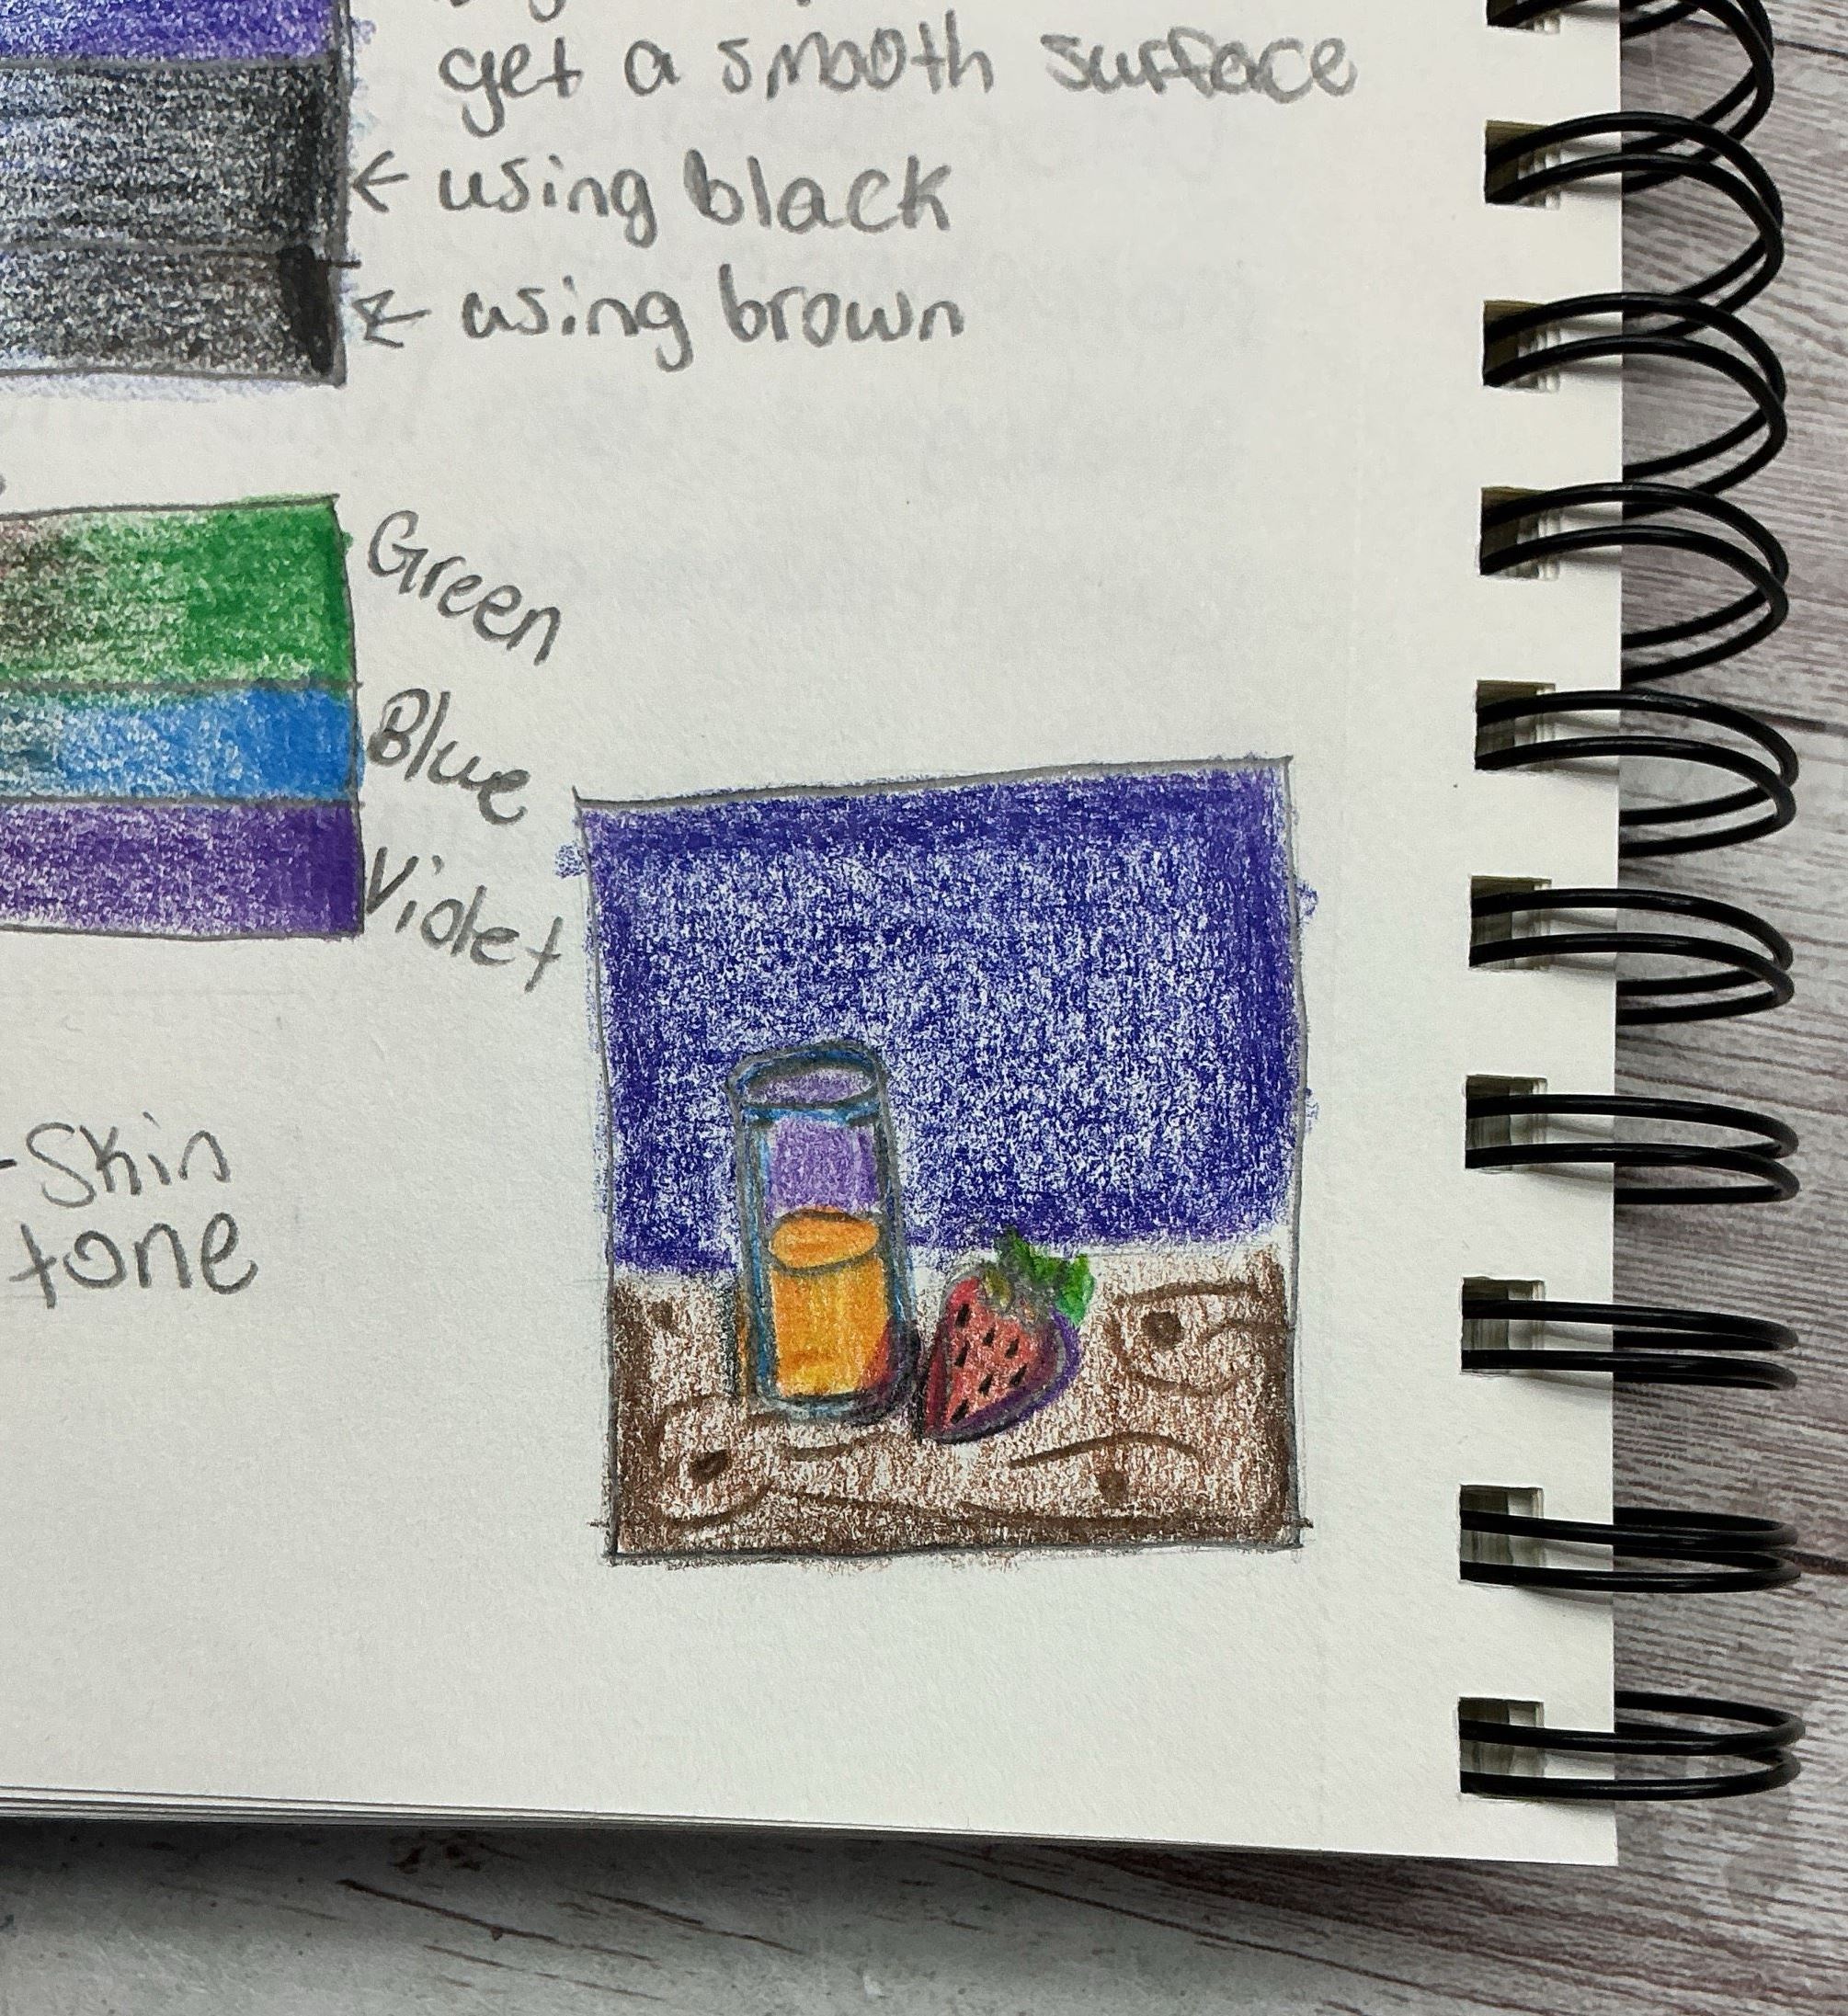 get a smooth surface
← using black
← using brown
Green
Blue
Violet
-Skin
tone